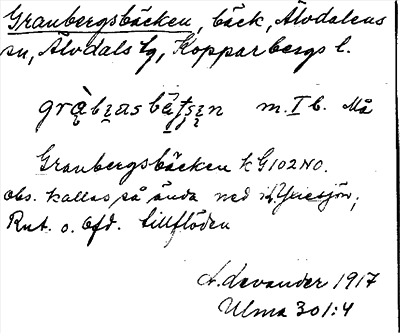 Granbergsbäcken, bäck, Älvdalens
sn, Älvdals tg, Kopparbergs l.
m. I b. Må
Granbergsbäcken k G102 NO.
obs. kallas så ända ned
Rut. o. Ofd. tillflöden
A. Levander 1917
Ulma 301:4